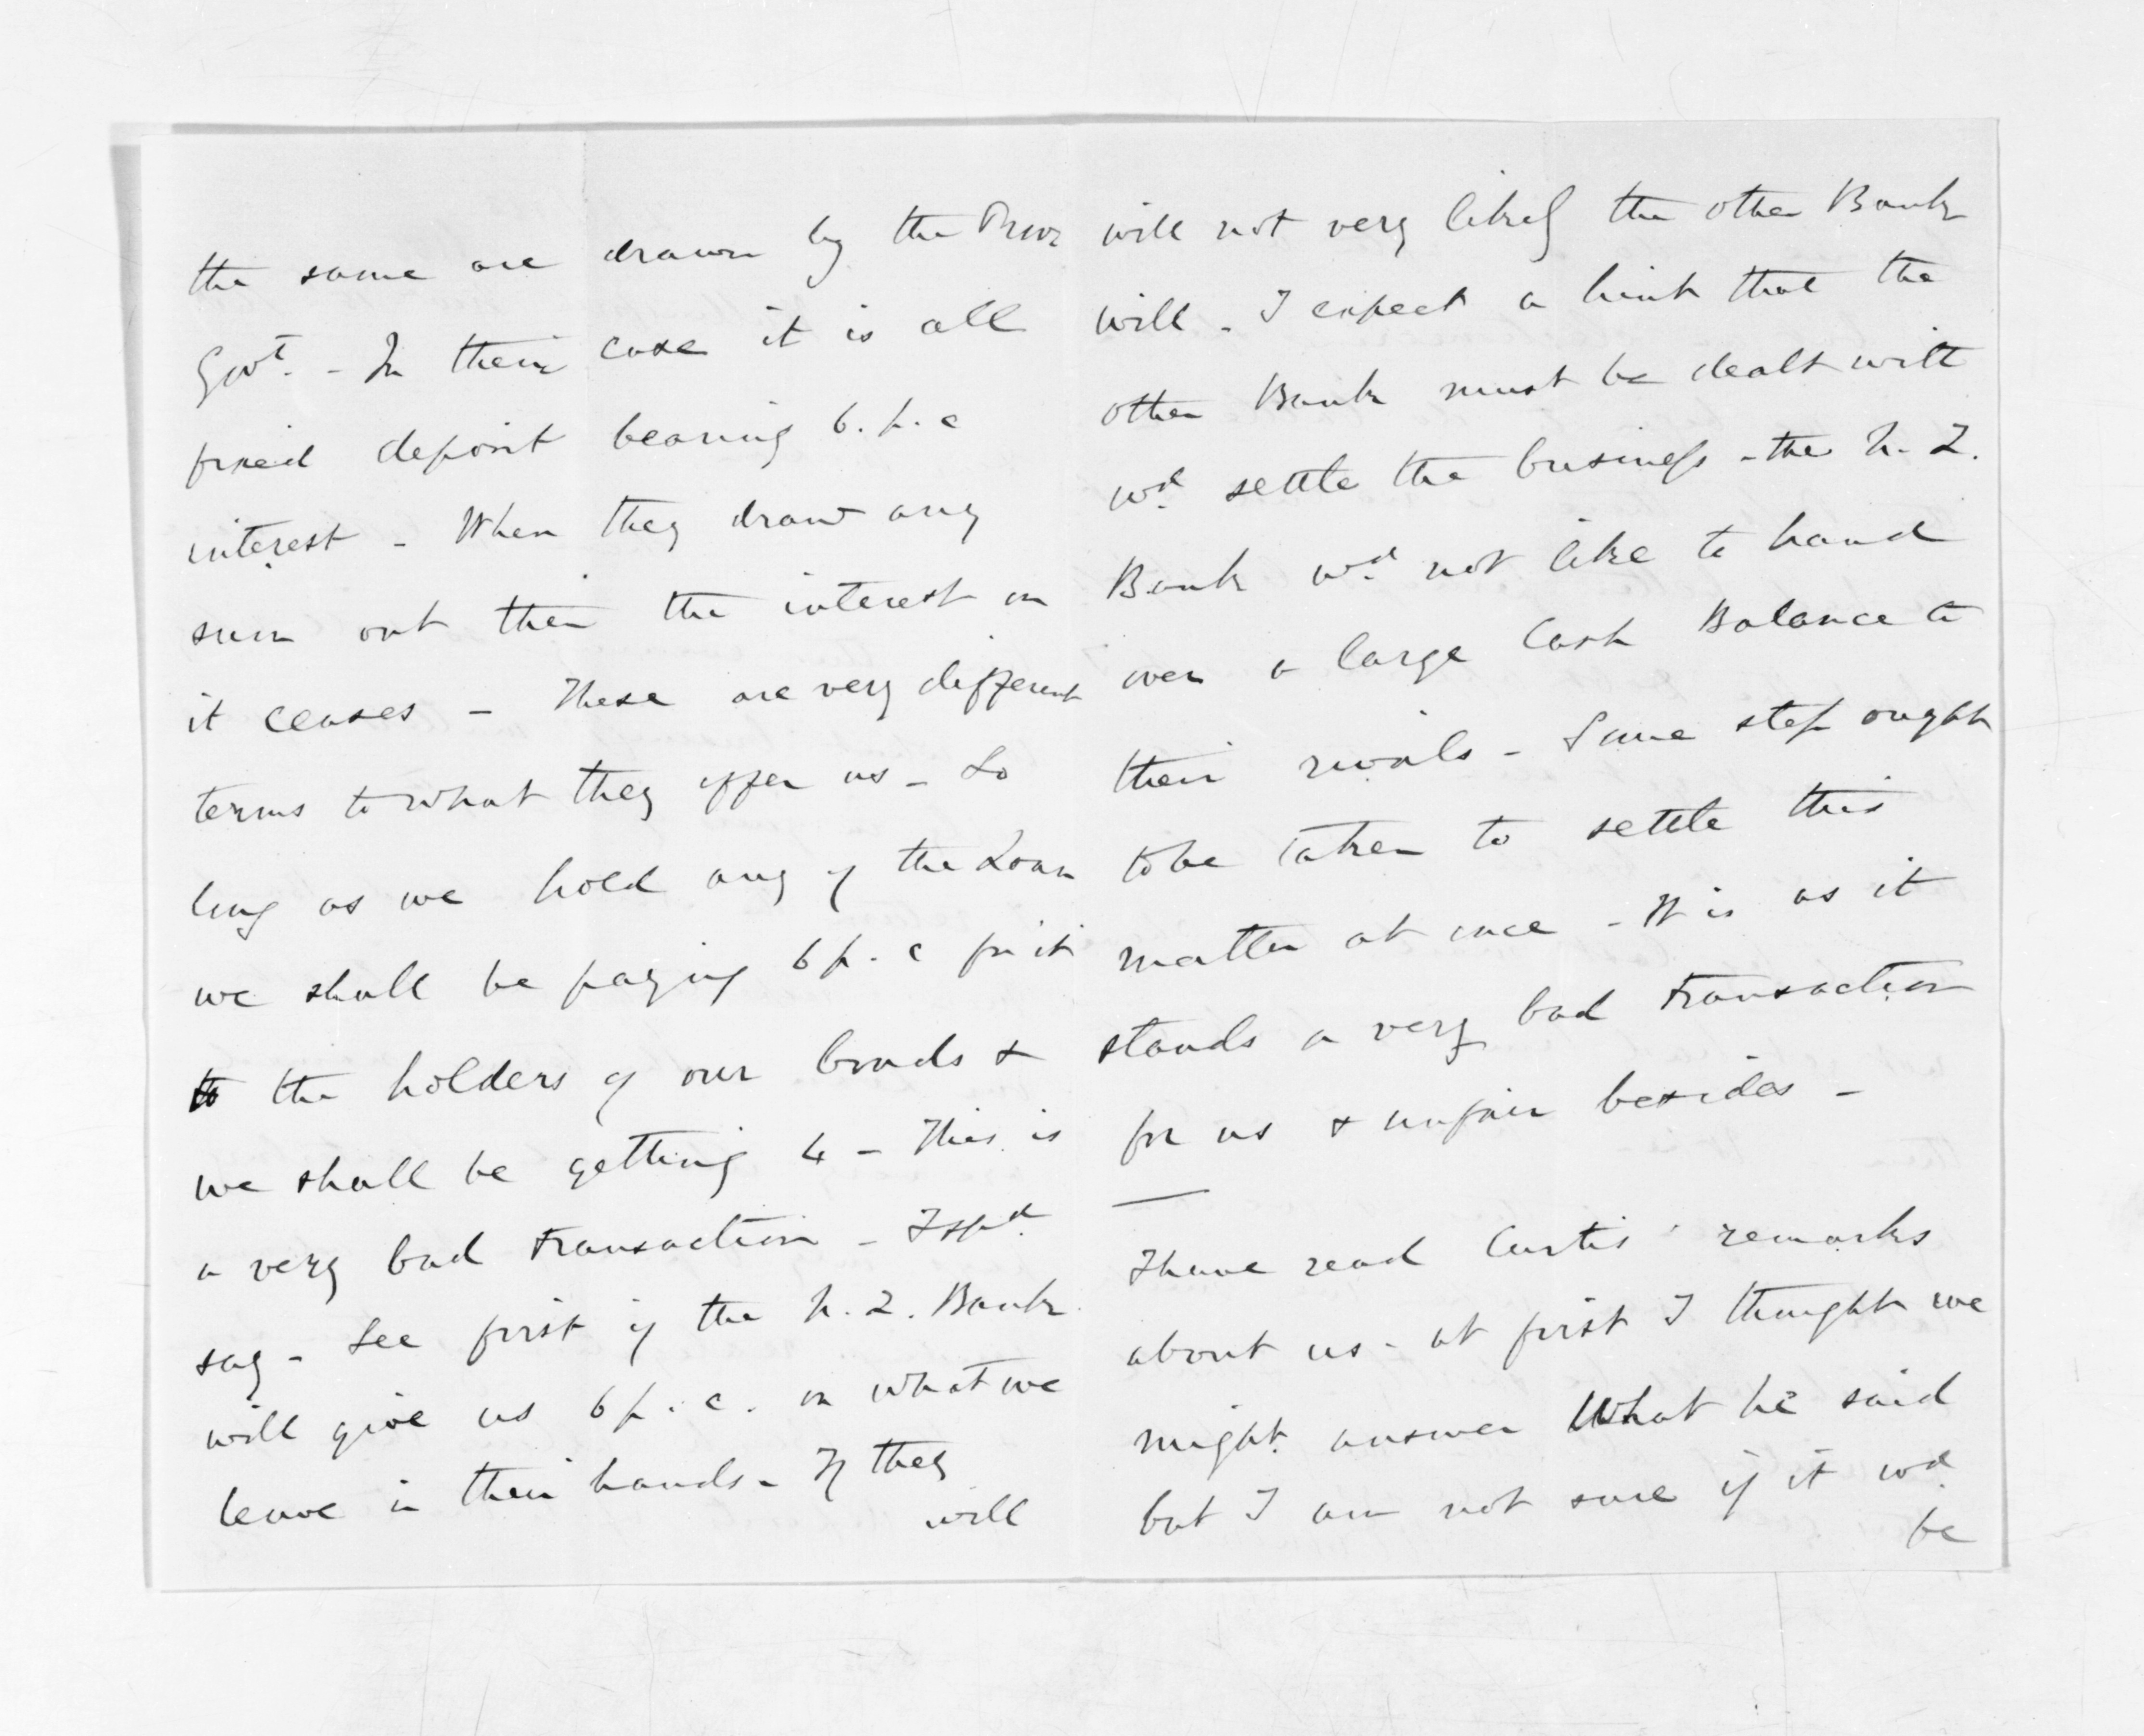 the same are drawn by the Prov
Govt. - In their case it is all
fixed deposit bearing 6. p. c
interest - When they draw any
sum out then the interest on
it ceases - These are very different
terms to what they offer us - So
long as we hold any of the Loan
we shall be paying 6 p. c for it
to the holders of our bonds &
we shall be getting 4 - This is
a very bad transaction - I shd.
say - See first if the N. Z. Bank
will give us 6 p. c. on what we
leave in their hands - If they
will
will not very likely the other Bank
will - I expect a hint that the
other Bank must be dealt with
wd. settle the business - the N. Z.
Bank wd. not like to hand
over a large Cash Balance to
their rivals - Some step ought
to be taken to settle this
matter at once - It is as it
stands a very bad transaction
for us & unfair besides -
I have read Curtis' remarks
about us - at first I thought we
might answer What he said
but I am not sure if it wd.
be